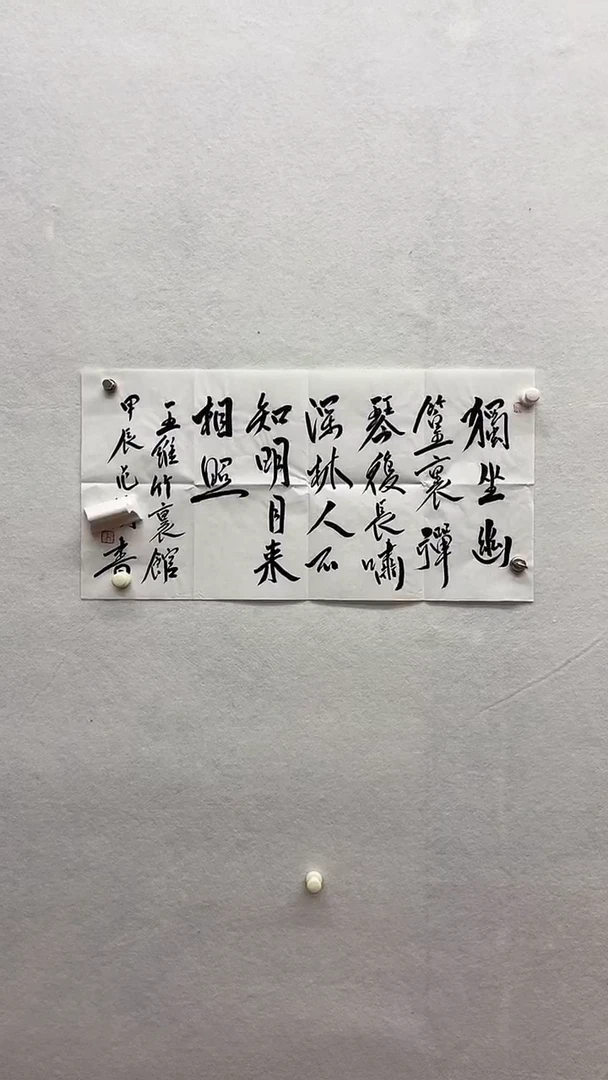 獨坐幽
篁裏彈
琴復長嘯
深林人不
知明月来
相照
王維竹裏館
甲辰范
書